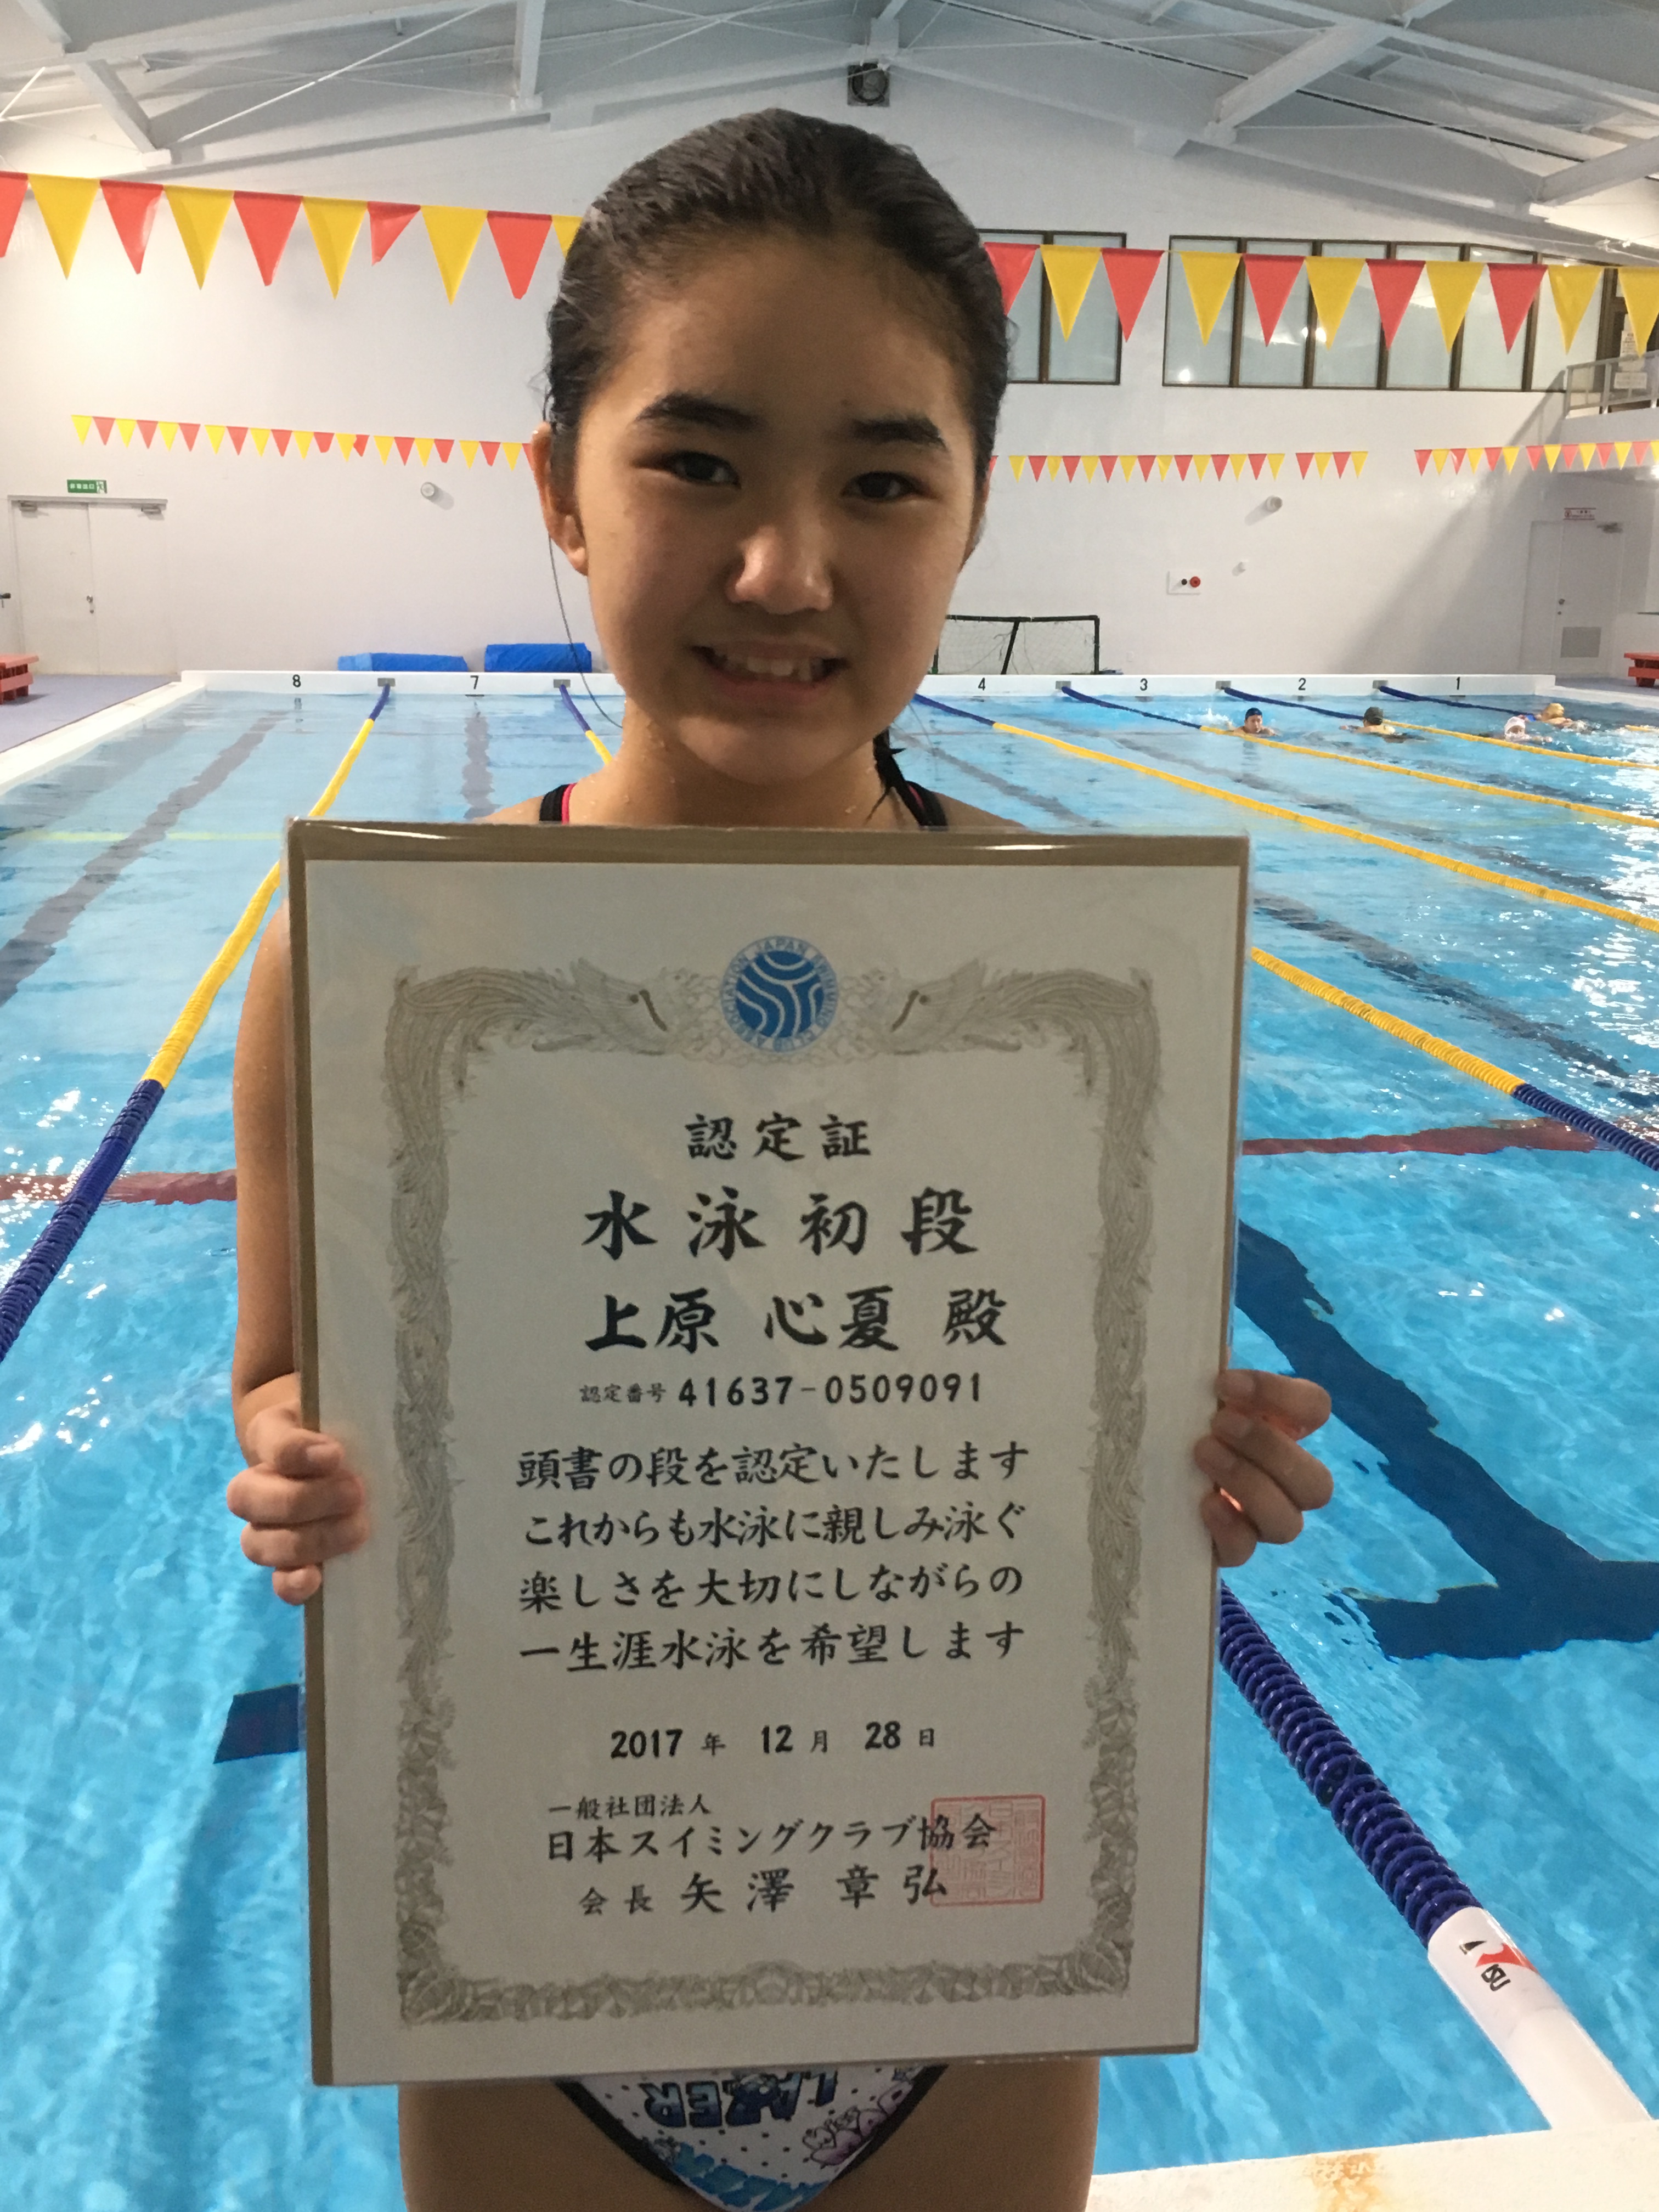 8
7
4
3
2
1
JAPAN SWIMMING CLUB ASSOCIATION
認定証
水泳初段
上原 心夏 殿
認定番号 41637-0509091
頭書の段を認定いたします
これからも水泳に親しみ泳ぐ
楽しさを大切にしながらの
一生涯水泳を希望します
2017 年 12 月 28 日
一般社団法人
日本スイミングクラブ協会
会長 矢澤 章弘
LAZER